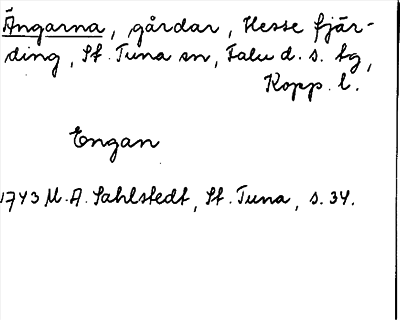 Ängarna, gårdar, Hesse fjär-
ding, St. Tuna sn, Falu d. s. tg,
Kopp. l.
Engan
1743 M. A. Sahlstedt, St. Tuna, s. 34.